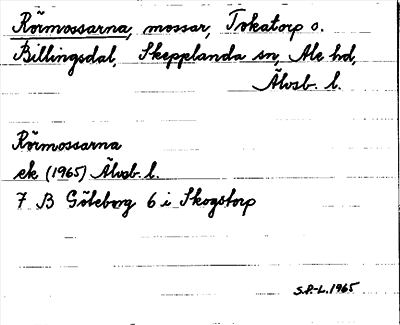 Rörmossarna, mossar, Tokatorp o.
Billingsdal, Skepplanda sn, Ale hd,
Älvsb. l.
Rörmossarna
ek (1965) Älvsb. l.
7 B Göteborg 6 i Skogstorp
S.P.-L. 1965